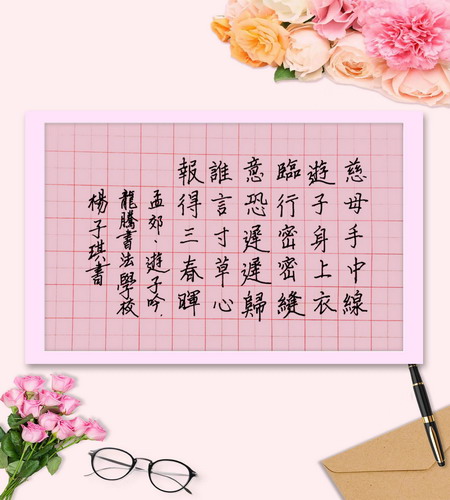 慈母手中線
遊子身上衣
臨行密密縫
意恐遲遲歸
誰言寸草心
報得三春暉
孟郊、遊子吟.
龍騰書法學校
楊子琪書